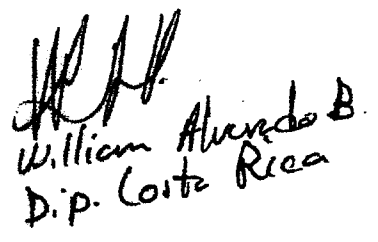 William Alvarado B.
Dip. Costa Rica